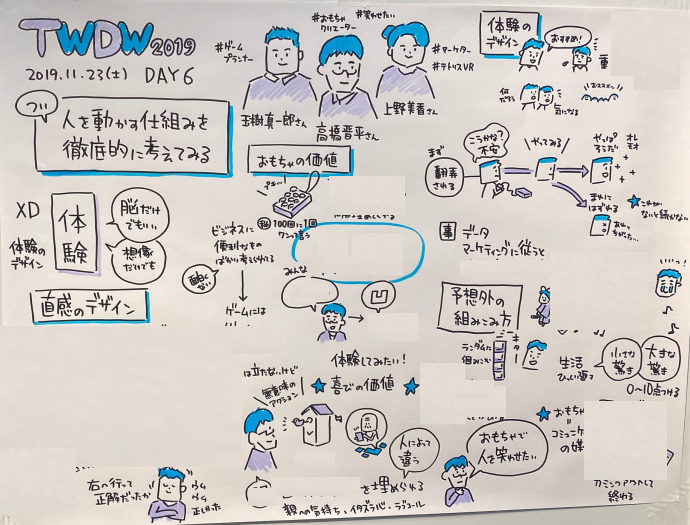 TWDW2019
2019.11.23(土) DAY6
つい
人を動かす仕組みを
徹底的に考えてみる
#ゲーム
プランナー
#おもちゃ
クリエーター
#笑わせたい
#マーケター
#テトリスVR
玉樹真一郎さん
高橋晋平さん
上野美香さん
体験の
デザイン
おすすめ!
何
気になる
XD
体験の
デザイン
体験
脳だけ
でもいい
想像
だけでも
直感のデザイン
おもちゃの価値
100回に1回
ワンって言う
ビジネスに
便利なもの
ばかり考えられてる
面白く
ない
ゲームには
みんな
凹
まず
翻弄
される
こうかな?
不安
やってみる
やっぱ
そうだ
オレ
モオ
まれに
はずれる
データ
マーケティングに従うと
予想外の
組みこみ方
ランダムに
組みこむ
生活
小さな
驚き
大きな
驚き
0〜10点つける
体験してみたい!
は立たないけど
無意味の
アクション
喜びの価値
人によって
違う
おもちゃで
人を笑わせたい
おもちゃ
=
コミュニケ
の媒
右へ行って
正解だったか
を埋められる
親への気持ち・イタズラ心・
終わる